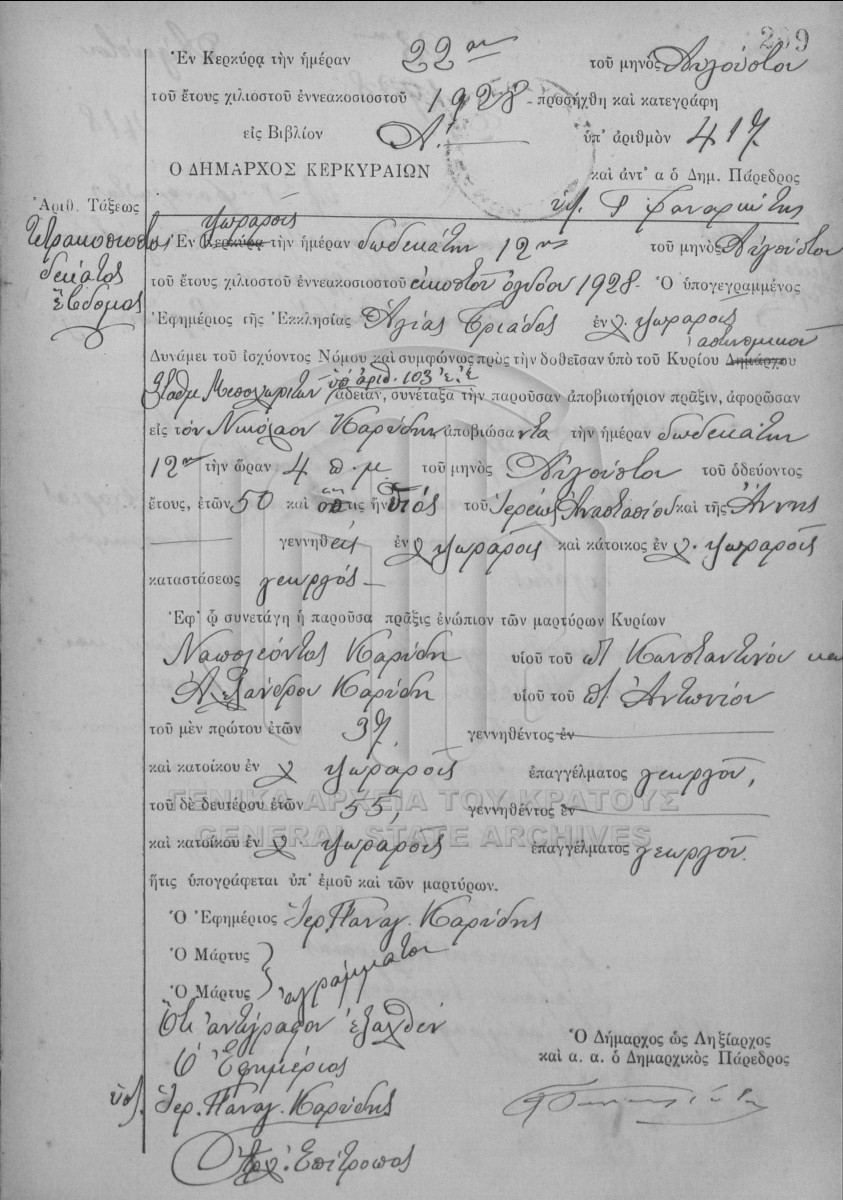 269
Ἐν Κερκύρᾳ τὴν ἡμέραν 22αν τοῦ μηνὸς Αὐγούστου
τοῦ ἔτους χιλιοστοῦ ἐννεακοσιοστοῦ 1928 προσήχθη καὶ κατεγράφη
εἰς Βιβλίον Α΄. ὑπ᾿ ἀριθμὸν 417
Ο ΔΗΜΑΡΧΟΣ ΚΕΡΚΥΡΑΙΩΝ καὶ ἀντ᾿ α ὁ Δημ. Πάρεδρος
Ἀριθ. Τάξεως
Τετρακοσιοστὸς
δέκατος
ἕβδομος
Ἐν Κερκύρᾳ τὴν ἡμέραν δωδεκάτην 12ην τοῦ μηνὸς Αὐγούστου
τοῦ ἔτους χιλιοστοῦ ἐννεακοσιοστοῦ εἰκοστοῦ ὀγδόου 1928. Ὁ ὑπογεγραμμένος
Ἐφημέριος τῆς Ἐκκλησίας Ἁγίας Τριάδος ἐν χ.
ἀστυνομικοῦ
Δυνάμει τοῦ ἰσχύοντος Νόμου καὶ συμφώνως πρὸς τὴν δοθεῖσαν ὑπὸ τοῦ Κυρίου Δημάρχου
ὑπ᾿ ἀριθ. 103 ἐ.ἔ.
ἄδειαν, συνέταξα τὴν παροῦσαν ἀποβιωτήριον πρᾶξιν, ἀφορῶσαν
εἰς τὸν Νικόλαον Καρύδην ἀποβιώσαντα τὴν ἡμέραν δωδεκάτην
12ην τὴν ὥραν 4 π.μ. τοῦ μηνὸς Αὐγούστου τοῦ ὁδεύοντος
ἔτους, ἐτῶν 50 καὶ ὅστις ἦν υἱὸς τοῦ Ἱερέως Ἀναστασίου καὶ τῆς Ἄννης
γεννηθεὶς ἐν χ. καὶ κάτοικος ἐν χ.
καταστάσεως γεωργός
Ἐφ᾿ ᾧ συνετάγη ἡ παροῦσα πρᾶξις ἐνώπιον τῶν μαρτύρων Κυρίων
Ναπολέοντος Καρύδη υἱοῦ τοῦ π. Κωνσταντίνου και
Ἀλεξάνδρου Καρύδη υἱοῦ τοῦ π. Ἀντωνίου
τοῦ μὲν πρώτου ἐτῶν 37, γεννηθέντος ἐν
καὶ κατοίκου ἐν χ ἐπαγγέλματος γεωργοῦ,
τοῦ δὲ δευτέρου ἐτῶν 55, γεννηθέντος ἐν
καὶ κατοίκου ἐν χ ἐπαγγέλματος γεωργοῦ.
ἥτις ὑπογράφεται ὑπ᾿ ἐμοῦ καὶ τῶν μαρτύρων.
Ὁ Ἐφημέριος Ἱερ. Παναγ. Καρύδης
Ὁ Μάρτυς
Ὁ Μάρτυς ἀγράμματοι
Ὅτι ἀντίγραφον
Ὁ Ἐφημέριος
ὑπ. Ἱερ. Παναγ. Καρύδης
Ἀρχ. Ἐπίτροπος
Ὁ Δήμαρχος ὡς Ληξίαρχος
καὶ α. α. ὁ Δημαρχικὸς Πάρεδρος
ΓΕΝΙΚΑ ΑΡΧΕΙΑ ΤΟΥ ΚΡΑΤΟΥΣ
GENERAL STATE ARCHIVES